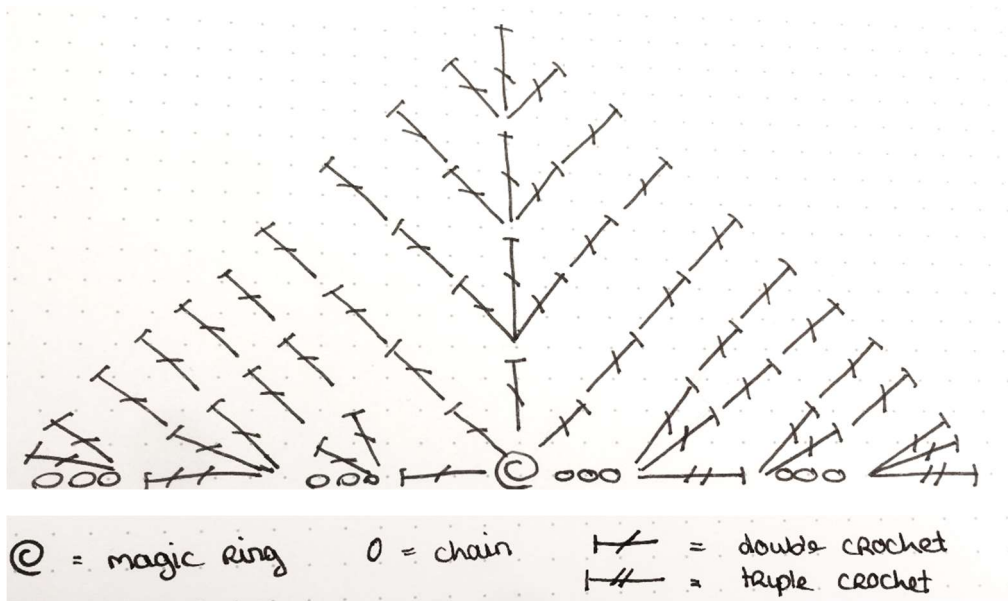 = magic ring 0 = chain = double crochet
= triple crochet